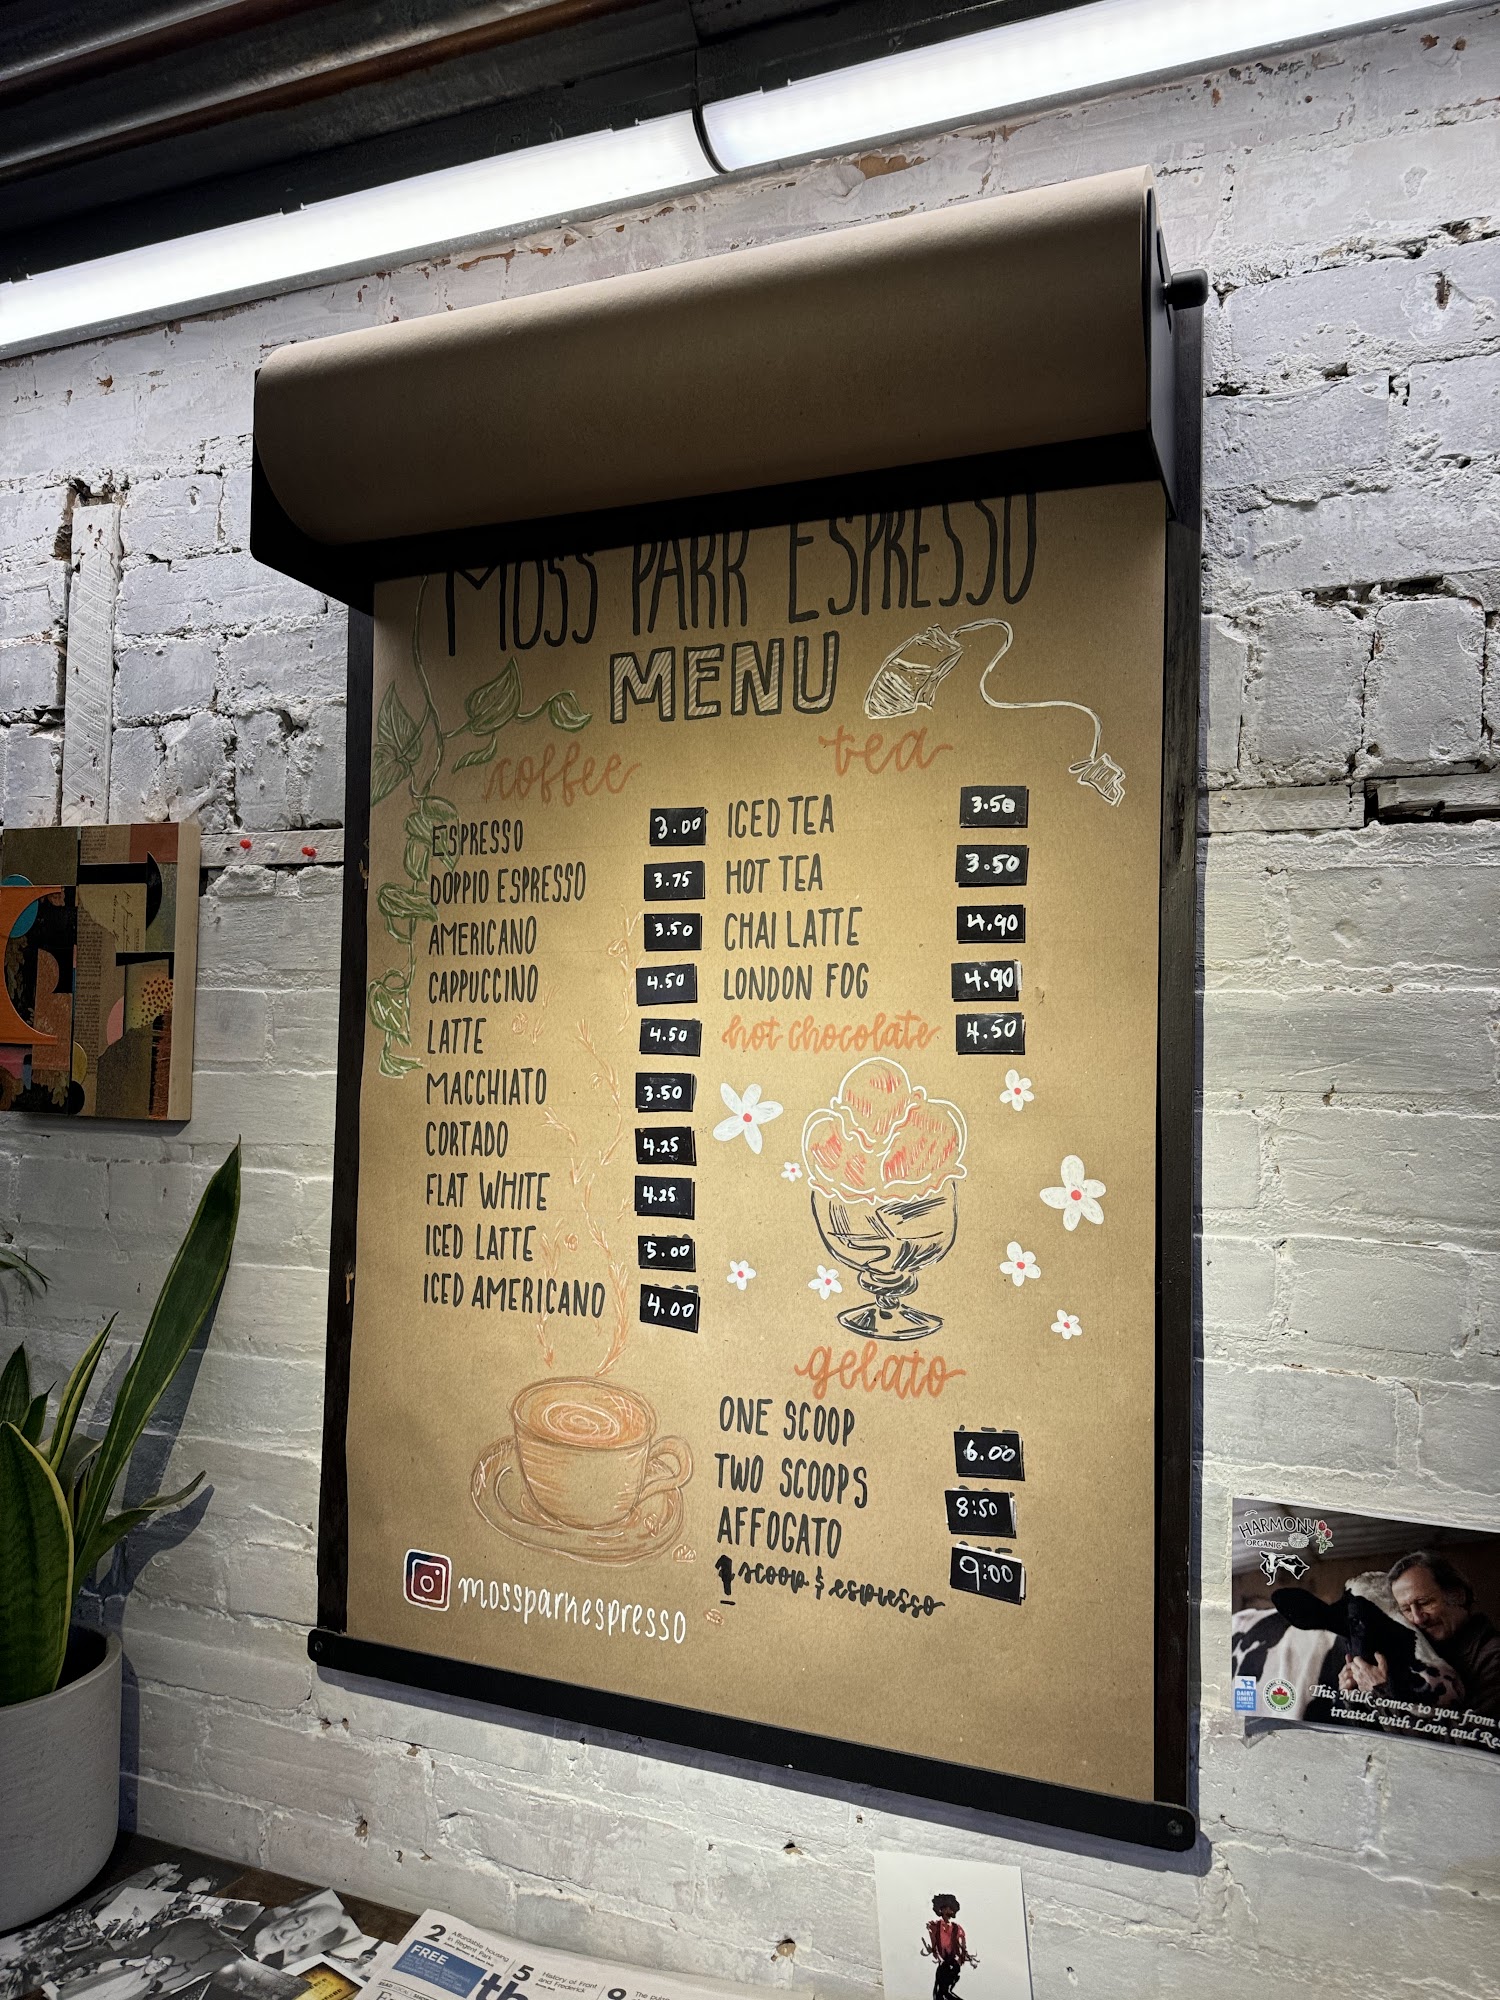 MOSS PARK ESPRESSO
MENU
coffee
ESPRESSO 3.00
DOPPIO ESPRESSO 3.75
AMERICANO 3.50
CAPPUCCINO 4.50
LATTE 4.50
MACCHIATO 3.50
CORTADO 4.25
FLAT WHITE 4.25
ICED LATTE 5.00
ICED AMERICANO 4.00
tea
ICED TEA 3.50
HOT TEA 3.50
CHAI LATTE 4.90
LONDON FOG 4.90
hot chocolate 4.50
gelato
ONE SCOOP 6.00
TWO SCOOPS 8:50
AFFOGATO 9:00
1 scoop & espresso
mossparkespresso
HARMONY
ORGANIC
DAIRY
This Milk comes to you from
treated with Love and
2 Affordable housing
in Regent Park
FREE
5 History of Front
and Frederick
9